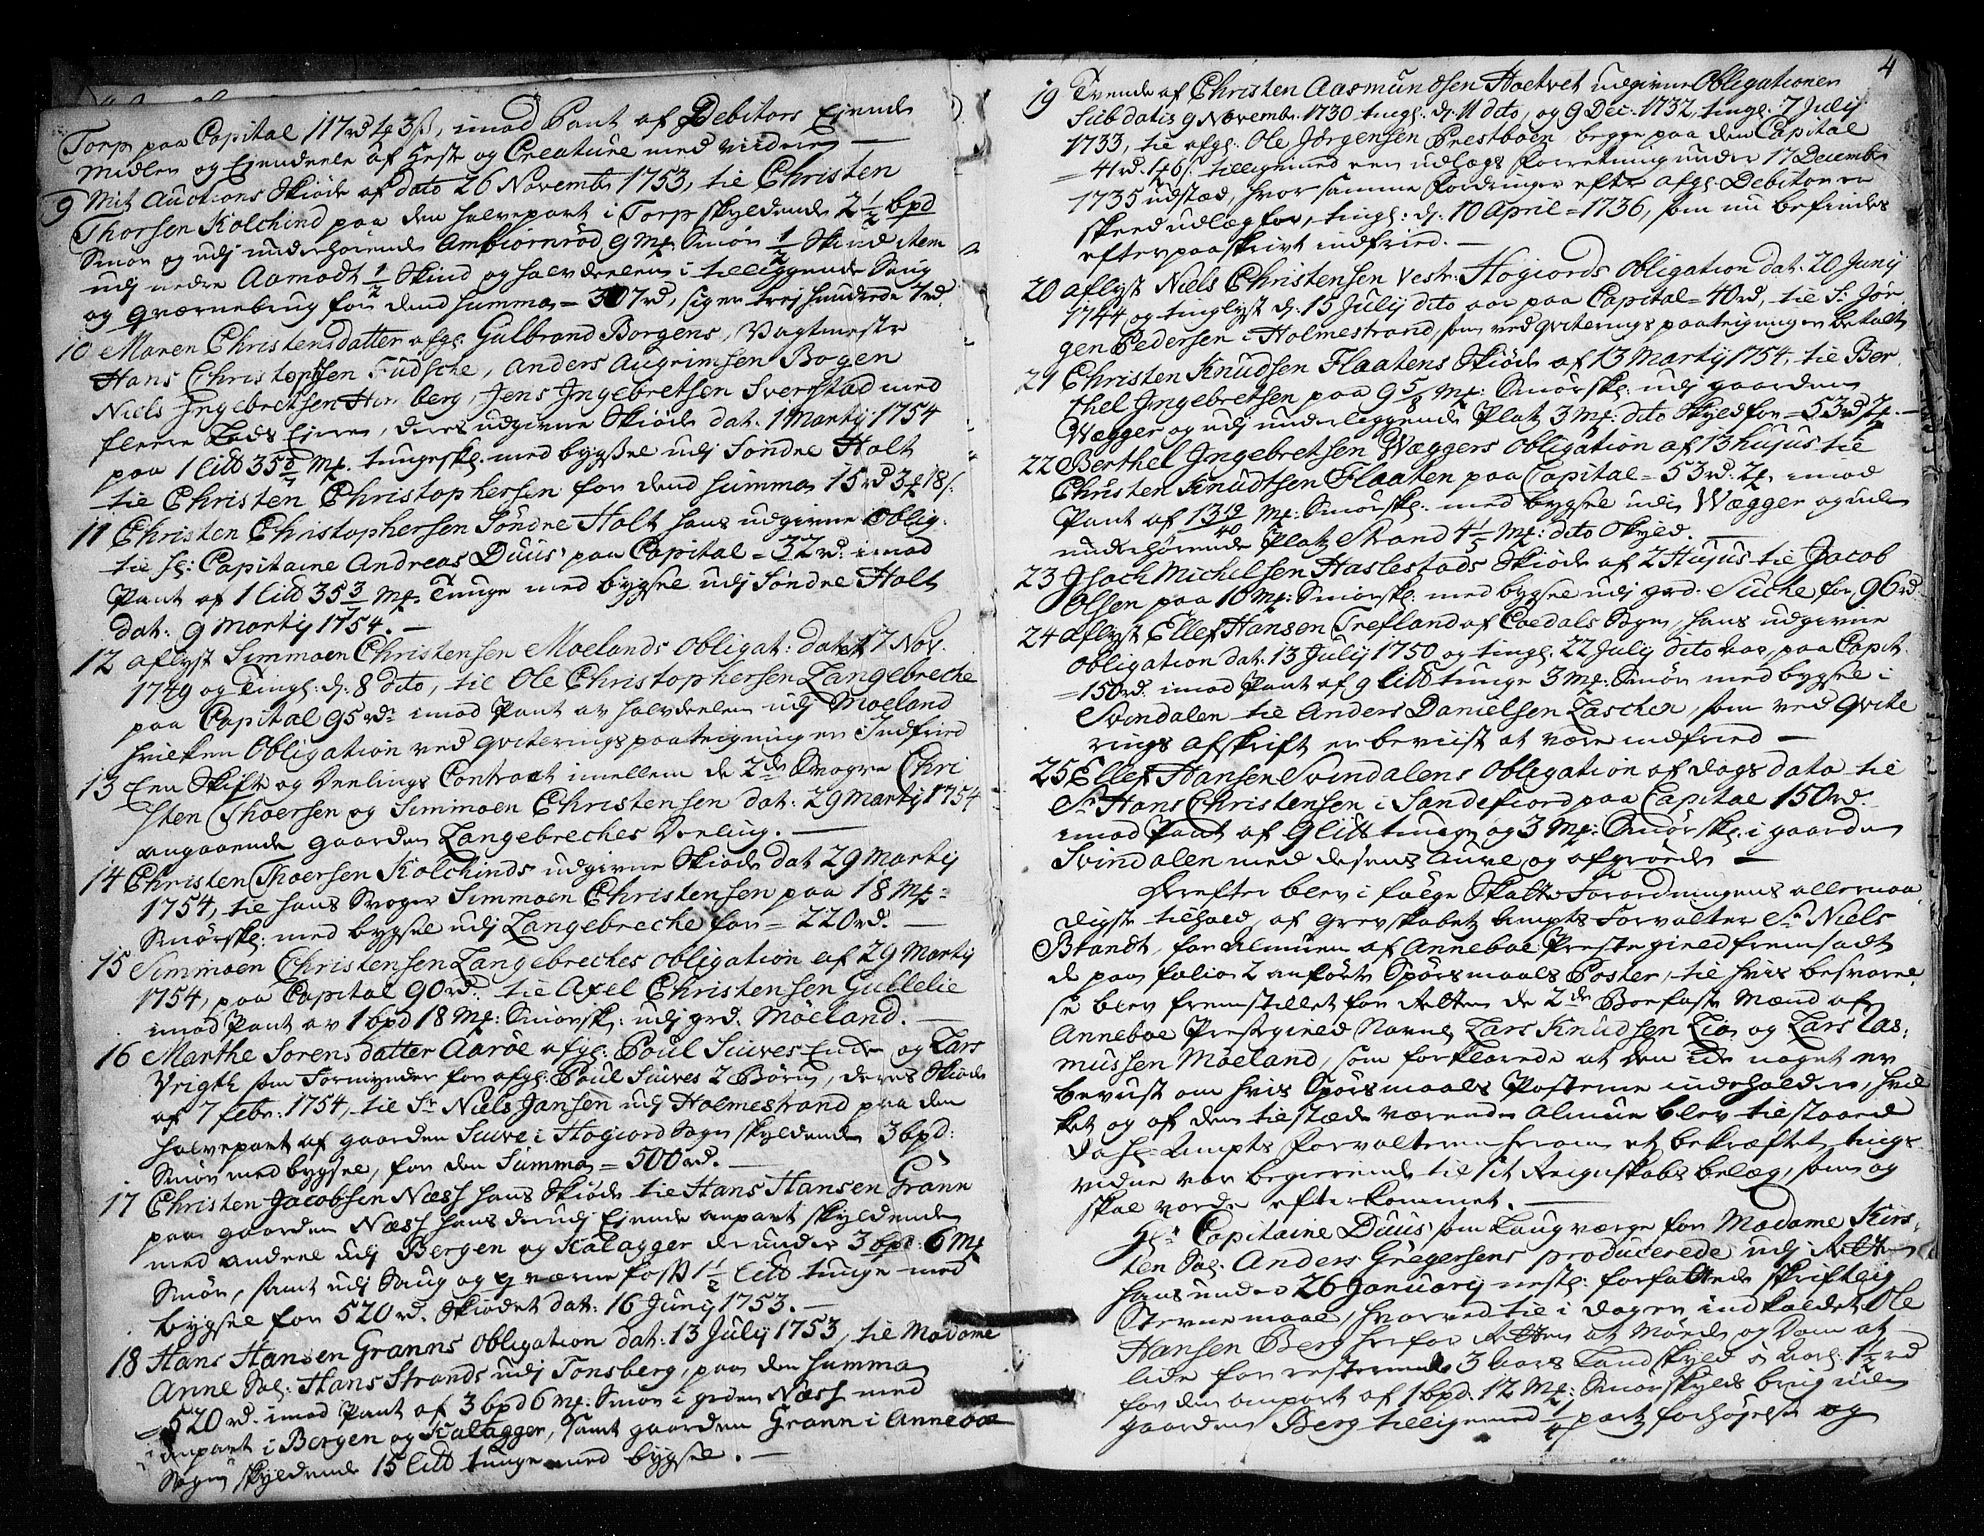 Torp paa Capital 117rd 1ꝗ 3ß, imod Pant af Debitors Ejende
Midler og Ejendeele af Heste og Creature med viidere —
9 Mit Auctions Skiöde af dato 26 Novembr 1753, til Christen
Thorsen Kolchind paa den halvepart i Torp skyldende 2½ bpd
Smör og udj underhörende Ambiörnröd 9 Mk Smör ½ Skind item
udj nedre Aamodt ½ Skind og halvdeelen i tilliggende Saug
og Qværnebrug for dend Summa = 307rd, siger trej hundrede 7rd.
10 Maren Christensdatter afgl. Gulbrand Borgens, Vagtmestr
Hans Christophsen Fudsche, Anders Augrimsen Bogen
Niels Ingebretsen Berg, Jens Ingebretsen Sverstad med
fleere Lods Ejere, deres udgivne Skiöde dat. 1 Martij 1754
paa 1 Litd 35 3/7 Mk. tungeskl. med bygsel udj Söndre Holt
til Christen Christophersen for dend Summa 15rd 3ꝗ 18ß.
11 Christen Christophersen Söndre Holt hans udgivne Oblig.
til Hl: Capitaine Andreas Duus' paa Capital = 32rd. imod
Pant af 1 Litd 35 3/7 Mk. Tunge med bygsel udj Söndre Holt
dat. 9 Martij 1754. —
12 aflyst Simmoen Christensen Moelands Obligat: datet 7 Nov.
1749 og Tingl. d. 8 dito, til Ole Christophersen Langebreche
paa Capital 95rd. imod Pant av halvdeelen udj Moeland
hvilken Obligation ved qviterings paategning er Indfried
13 Een Skifte og Deelings Contract imellem de 2de Svogre Chri
sten Thoersen og Simmoen Christensen dat: 29 Martij 1754
angaaende gaarden Langebreches Deeling. —
14 Christen Thoersen Kolchinds udgivne Skiöde dat 29 Martij
1754, til hans Svoger Simmoen Christensen paa 18 Mk
Smörskl. med bygsel udj Langebreche for = 220rd. —
15 Simmoen Christensen Langebreches Obligation af 29 Martij
1754, paa Capital 90rd. til Axel Christensen Gullelie
imod Pant av 1 bpd 18 Mk: Smörskl: udj grd. Möeland. —
16 Marthe Sorensdatter Aaröe afgl: Poul Suives Enke og Lars
Vrigth som Formynder for afgl: Poul Suives 2 Börn, deres Skiöde
af 7 febr: 1754, til Sr Niels Jansen udj Holmestrand paa den
halvepart af gaarden Suive i Hogiord Sogn skyldende 3 bpd:
Smör med bygsel, for den Summa = 500rd. —
17 Christen Jacobsen Næss hans Skiöde til Hans Hansen Grann
paa gaarden Næss hans derudj Ejende anpart skyldende
med andeel udj Bergen og Kalagger derunder 3 bpd: 6 Mk
Smör, samt udj Saug og qværnefoss 1½ Litd tunge med
bygsel for 520rd. Skiödet dat: 16 Junij 1753. —
18 Hans Hansen Granns Obligation dat: 13 Julij 1753, til Madame
Anne Sal. Hans Strands udj Tonsberg, paa den Summa
= 520rd. imod Pant af 3 bpd 6 Mk: Smör i grden Næss med
anpart i Bergen og Kalagger, samt gaarden Grann i Anneboe
Sogn skyldende 15 Litd tunge med bygsel. —
4
19 Tvende af Christen Aasmundsen Hoetvet udgivne Obligationer
Sub datis 9 Novembr. 1730 tingl. d. 11 dito, og 9 Dec. 1732, tingl. 7 Julij
1733, til afgl. Ole Jörgensen Prestbÿen begge paa den Capital
= 41rd. 1ꝗ 6ß. tilligemed een udlægs forretning under 17 Decembr
1735 udstæd, hvor samme fordringer efter afgl. Debitor er
skeed udlæg for, tingl: d. 10 April = 1736, som nu befindes
efter paaskrivt indfried. —
20 aflyst Niels Christensen Vestr: Hogiords Obligation dat. 20 Junij
1744 og tinglyst d. 15 Julij dito aar paa Capital = 40rd, til Sr Jör
gen Pedersen i Holmestrand, som ved qviterings paategning er betalt
21 Christen Knudsen Flaatens Skiöde af 13 Martij 1754, til Ber
thel Ingebretsen paa 9 5/8 Mk: Smörskl. udj gaarden
Wægger og udj underliggende Platz 3 Mk: dito Skyld for = 53rd 2ꝗ. —
22 Berthel Ingebretsen Wæggers Obligation af 13 hujus til
Christen Knudtsen Flaaten paa Capital = 53rd. 2ꝗ, imod
Pant af 13 19/40 Mk: Smörskl. med bygsel udj Wægger og udi
underhörende Platz Strand 4 1/5 Mk: dito Skyld. —
23 Isach Michelsen Haslestads Skiöde af 2 Hujus til Jacob
Olsen paa 10 Mk: Smörskl. med bygsel udj grd. Suche for 96rd.
24 aflyst Ellef Hansen Trefland af Coedals Sogn, hans udgivne
Obligation dat. 13 Julij 1750 og tingl. 22 Julij dito aar, paa Capit.
= 150rd. imod Pant af 9 Litd tunge 3 Mk: Smör med bygsel i
Svindalen til Anders Danielsen Lascher, som ved qvite
rings afskrift er beviist at være indfried —
25 Ellef Hansen Svindalens Obligation af dags dato til
Sr Hans Christensen i Sandefiord paa Capital 150rd.
imod Pant af 9 Litt tunge og 3 Mk: Smörskl: i gaarden
Svindalen med desens auvl og afgröde —
Derefter blev i fölge Skatte Forordningens allernaa
digste tilhold af Grevskabet Ampts Forvalter Sr Niels
Brandt, for Almuen af Anneboe Prestegield fremsadt
de paa folio 2 anförte Spörsmaals Poster, til hvis besvarel
se blev fremstillet for Retten de 2de Boefaste Mænd af
Anneboe Prestegield Navnl. Lars Knudsen Lia og Lars Ras:
mussen Moeland, som forklarede at dem icke noget er
bevust om hvis Spörsmaals Posterne indeholder, hvil
ket og af den tilstæde værende Almue blev tilstaaed
Da Hl. Ampts Forvalteren herom et bekræftet tings
vidne var begierende til sit Reignskabs belæg, som og
skal vorde efterkommet. —
Hl: Capitaine Duus' som Laugværge for Madame Kirs,
ten Sal. Anders Gregersens producerede udj Retten
hans under 26 Januarij nestl: forfattede skriftlig
Stevnemaal, hvorved til i dag er indkaldet Ole
Hansen Berg herfor Retten at möde og Dom at
lide for resterende 3 Aars Landskyld a aarl: 1½rd
for den anpart af 1 bpd. 12 Mk: Smörskylds brug udi
gaarden Berg tilligemed ¼ part forhöjelse og